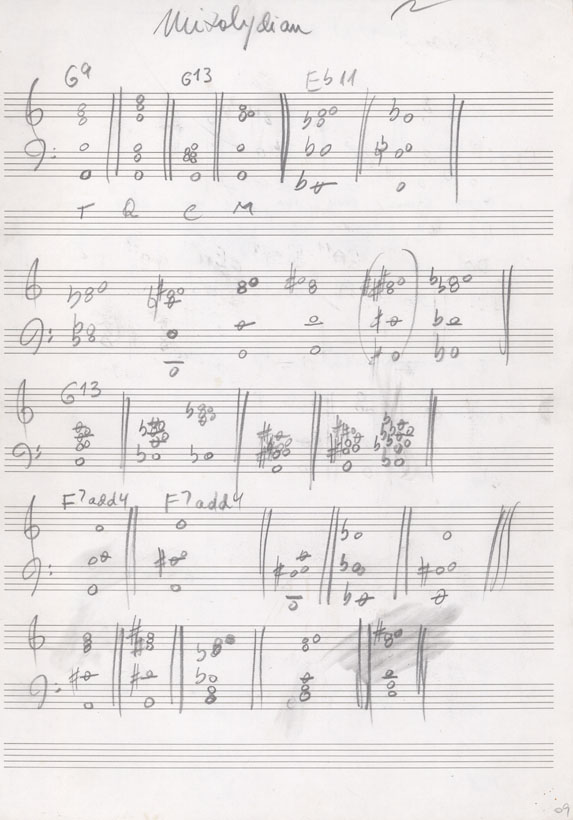 Mixolydian
G9 G13 Eb11
T Q C M
G13
F7add4 F7add4
09